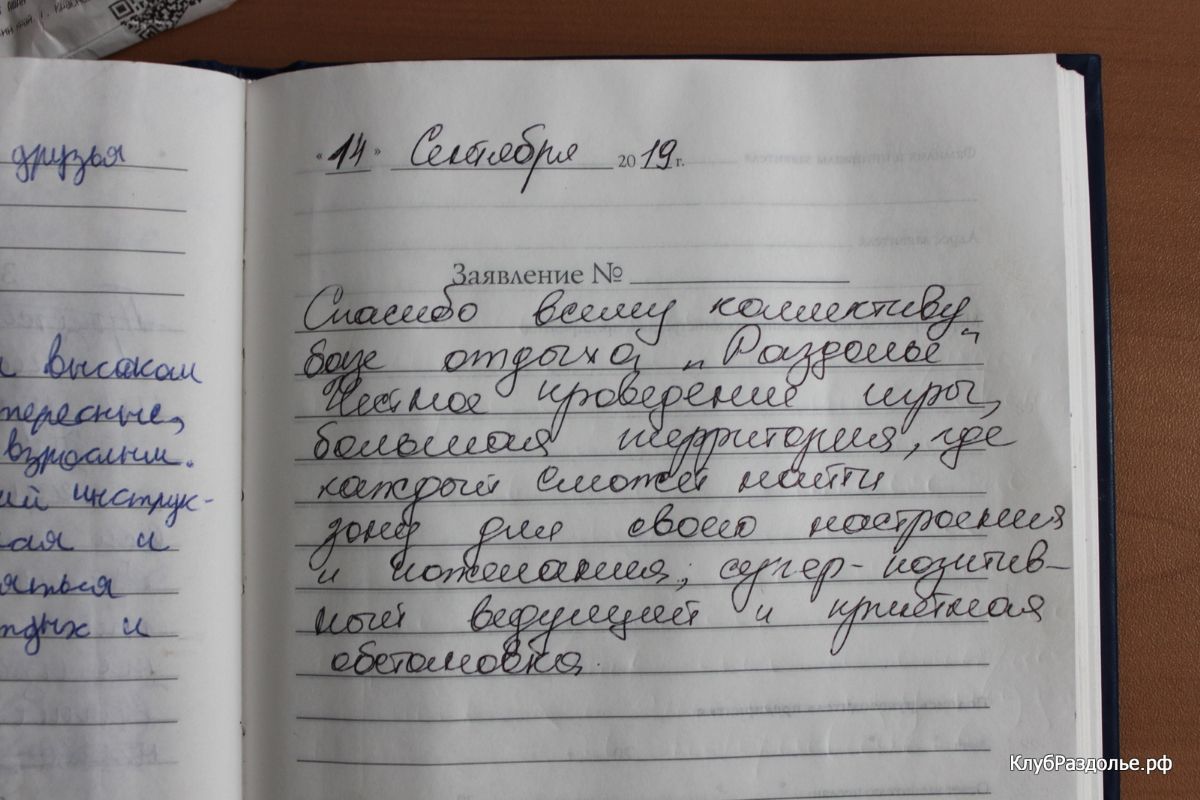 друзья
высоком
тересные,
взрослым.
ий инструк-
ая и
яться
тдых и
«14» Сентября 2019 г.
Заявление №
Спасибо всему коллективу
базе отдыха „Раздолье"
Честное проведение игры,
большая территория, где
каждый сможет найти
зону для своего настроения
и пожелания, супер-позитив-
ный ведущий и приятная
обстановка.
КлубРаздолье.рф